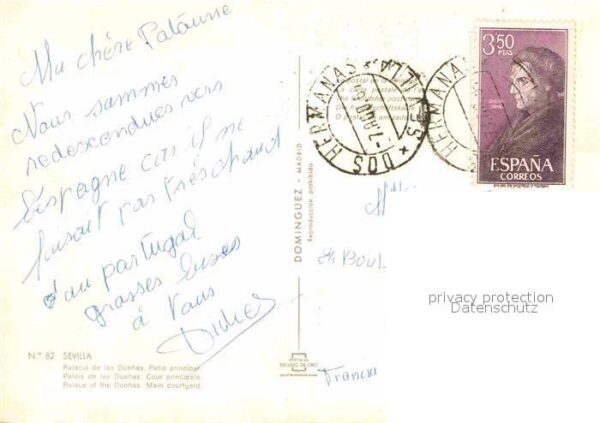 Ma chère Pataune
Nous sommes
redescendues vers
l'Espagne car il ne
faisait pas très chaud
au portugal
grosses bises
à Vous
Didier
N.º 82 SEVILLA
Palacio de las Dueñas. Patio principal.
Palais de las Dueñas. Cour principale.
Palace of the Dueñas. Main courtyard.
DOMINGUEZ - MADRID
Reproducción prohibida
POSTALES
ESCUDO DE ORO
DOS HERMANAS
SEVILLA
HERMANAS
3,50
PTAS
ESPAÑA
CORREOS
privacy protection
Datenschutz
France